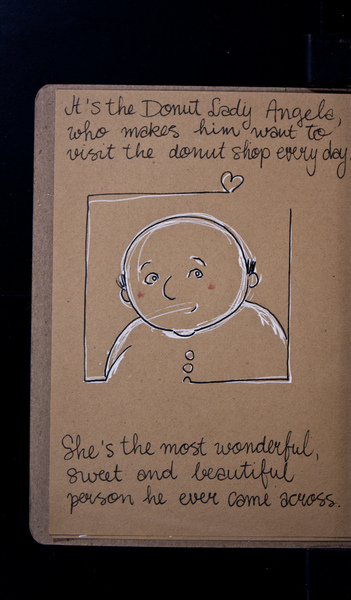 It's the Donut Lady Angela,
who makes him want to
visit the donut shop every day.
She's the most wonderful,
sweet and beautiful
person he ever came across.